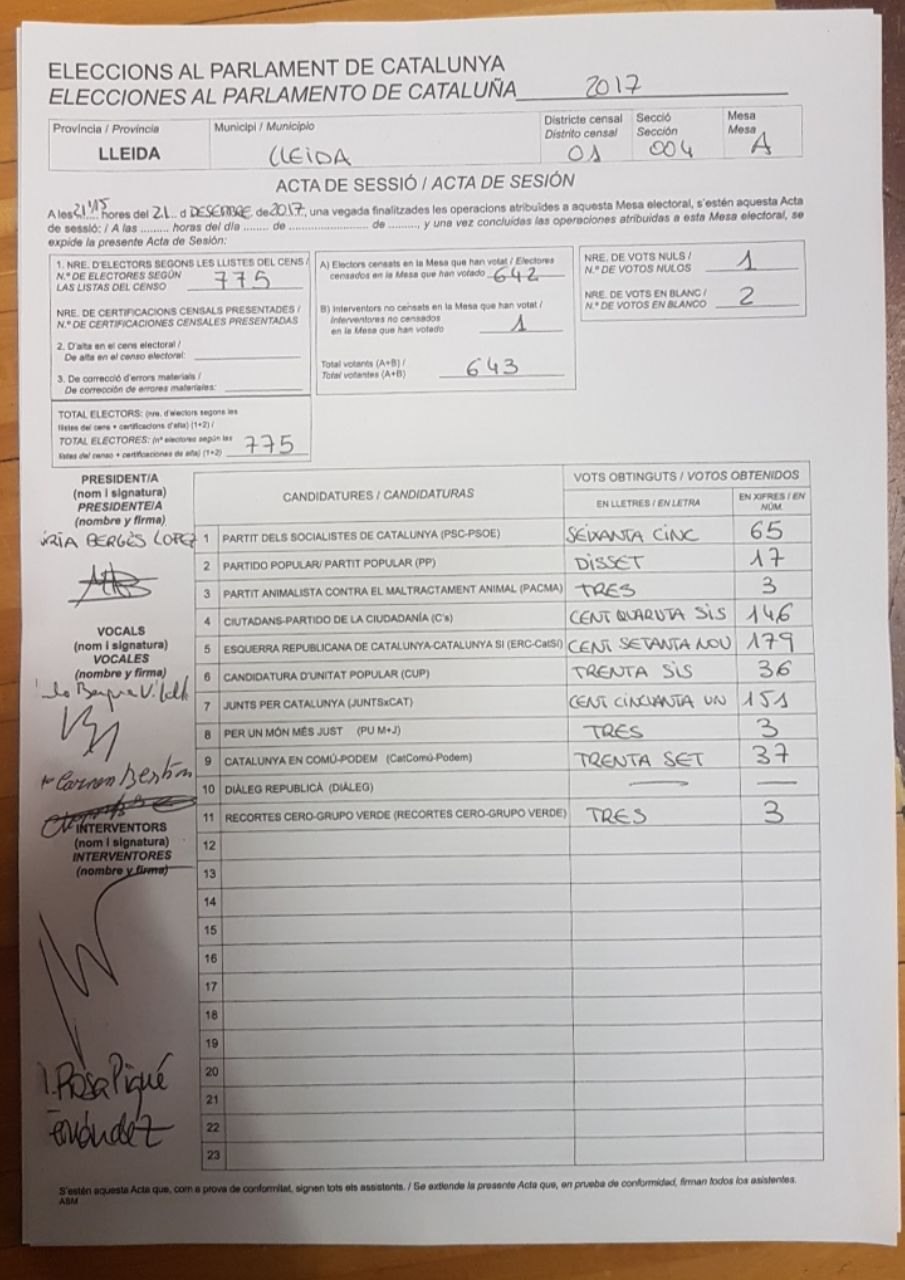 ELECCIONS AL PARLAMENT DE CATALUNYA
ELECCIONES AL PARLAMENTO DE CATALUÑA 2017
Província / Provincia
LLEIDA
Municipi / Municipio
LLEIDA
Districte censal
Distrito censal
01
Secció
Sección
004
Mesa
Mesa
A
ACTA DE SESSIÓ / ACTA DE SESIÓN
A les 21'15 hores del 21.. d DESEMBRE de 2017, una vegada finalitzades les operacions atribuïdes a aquesta Mesa electoral, s'estén aquesta Acta
de sessió: / A las ......... horas del día ........ de ........................ de ........., y una vez concluidas las operaciones atribuidas a esta Mesa electoral, se
expide la presente Acta de Sesión:
1. NRE. D'ELECTORS SEGONS LES LLISTES DEL CENS /
N.º DE ELECTORES SEGÚN
LAS LISTAS DEL CENSO 775
NRE. DE CERTIFICACIONS CENSALS PRESENTADES /
N.º DE CERTIFICACIONES CENSALES PRESENTADAS
2. D'alta en el cens electoral /
De alta en el censo electoral:
3. De correcció d'errors materials /
De corrección de errores materiales:
TOTAL ELECTORS: (nre. d'electors segons les
llistes del cens + certificacions d'alta) (1+2) /
TOTAL ELECTORES: (nº electores según las
listas del censo + certificaciones de alta) (1+2) 775
A) Electors censats en la Mesa que han votat / Electores
censados en la Mesa que han votado 642
B) Interventors no censats en la Mesa que han votat /
Interventores no censados
en la Mesa que han votado 1
Total votants (A+B) /
Total votantes (A+B) 643
NRE. DE VOTS NULS /
N.º DE VOTOS NULOS 1
NRE. DE VOTS EN BLANC /
N.º DE VOTOS EN BLANCO 2
PRESIDENT/A
(nom i signatura)
PRESIDENTE/A
(nombre y firma)
BERGÉS LOPEZ
VOCALS
(nom i signatura)
VOCALES
(nombre y firma)
Carmen
INTERVENTORS
(nom i signatura)
INTERVENTORES
(nombre y firma)
Rosa Piqué
CANDIDATURES / CANDIDATURAS
VOTS OBTINGUTS / VOTOS OBTENIDOS
EN LLETRES / EN LETRA
EN XIFRES / EN NÚM.
1 PARTIT DELS SOCIALISTES DE CATALUNYA (PSC-PSOE) SEIXANTA CINC 65
2 PARTIDO POPULAR/ PARTIT POPULAR (PP) DISSET 17
3 PARTIT ANIMALISTA CONTRA EL MALTRACTAMENT ANIMAL (PACMA) TRES 3
4 CIUTADANS-PARTIDO DE LA CIUDADANÍA (C's) CENT QUARUTA SIS 146
5 ESQUERRA REPUBLICANA DE CATALUNYA-CATALUNYA SI (ERC-CatSí) CENT SETANTA NOU 179
6 CANDIDATURA D'UNITAT POPULAR (CUP) TRENTA SIS 36
7 JUNTS PER CATALUNYA (JUNTSxCAT) CENT CINCUANTA UN 151
8 PER UN MÓN MÉS JUST (PU M+J) TRES 3
9 CATALUNYA EN COMÚ-PODEM (CatComú-Podem) TRENTA SET 37
10 DIÀLEG REPUBLICÀ (DIÀLEG) — —
11 RECORTES CERO-GRUPO VERDE (RECORTES CERO-GRUPO VERDE) TRES 3
12
13
14
15
16
17
18
19
20
21
22
23
S'estén aquesta Acta que, com a prova de conformitat, signen tots els assistents. / Se extiende la presente Acta que, en prueba de conformidad, firman todos los asistentes.
ASM